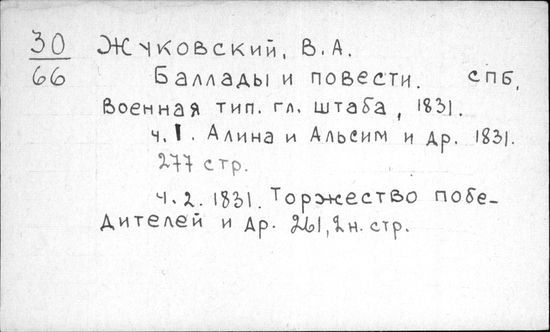 30 Жуковский, В.А.
66 Баллады и повести. спб,
Военная тип. гл. штаба, 1831.
ч. I. Алина и Альсим и др. 1831.
277 стр.
ч. 2. 1831. Торжество побе-
дителей и др. 261, 2 н. стр.